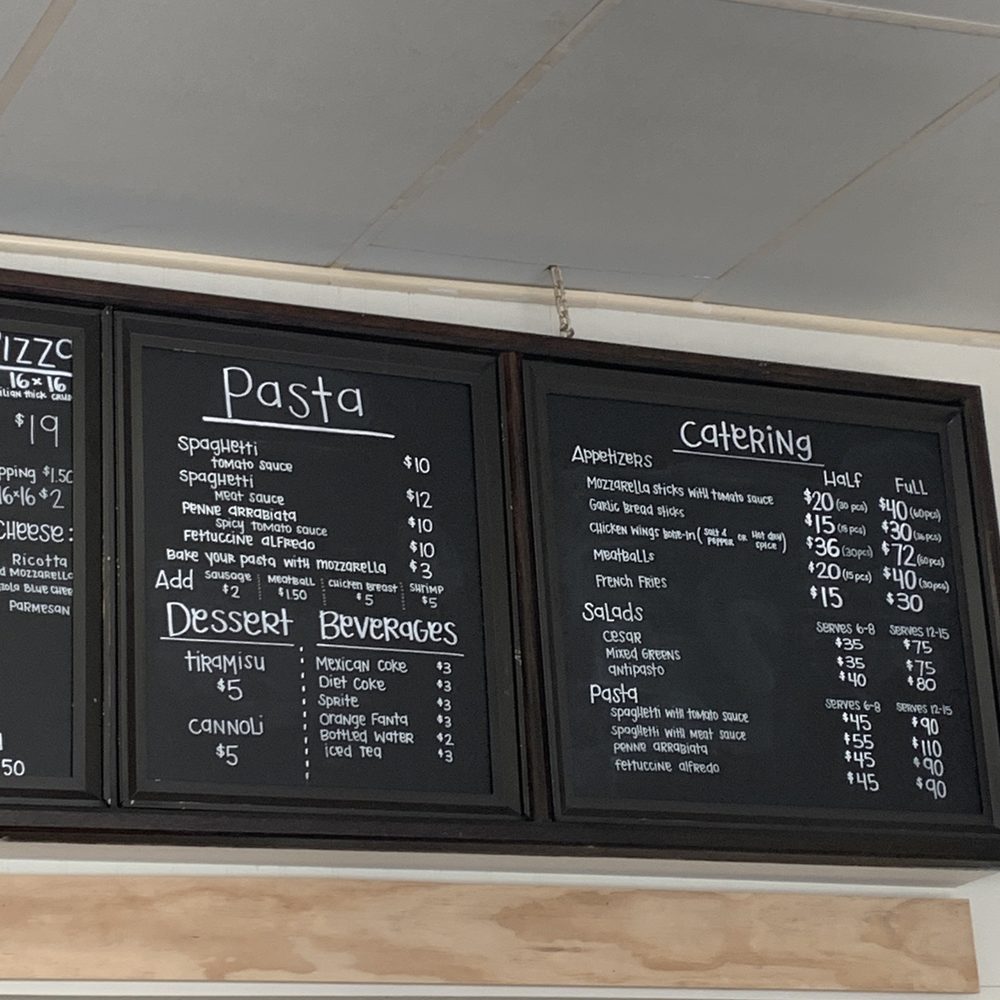 16x16
$19
pping $1.50
16x16 $2
CHEESE:
Ricotta
d Mozzarella
Blue chee
PARMESAN
50
Pasta
Spaghetti
tomato sauce $10
Spaghetti
Meat sauce $12
Penne arrabiata
Spicy tomato sauce $10
Fettuccine alfredo $10
Bake your pasta with mozzarella $3
Add Sausage $2 Meatball $1.50 Chicken Breast $5 Shrimp $5
Dessert
tiramisu
$5
cannoli
$5
Beverages
Mexican Coke $3
Diet Coke $3
Sprite $3
Orange Fanta $3
Bottled Water $2
iced Tea $3
Catering
Appetizers Half Full
Mozzarella sticks with tomato sauce $20 (30 pcs) $40 (60 pcs)
Garlic Bread sticks $15 $30
Chicken Wings Bone-in (Salt & Pepper or Hot spice) $36 (30 pcs) $72 (60 pcs)
Meatballs $20 (15 pcs) $40 (30 pcs)
French Fries $15 $30
Salads Serves 6-8 Serves 12-15
Cesar $35 $75
Mixed Greens $35 $75
antipasto $40 $80
Pasta Serves 6-8 Serves 12-15
Spaghetti with tomato sauce $45 $90
Spaghetti with meat sauce $55 $110
Penne arrabiata $45 $90
fettuccine alfredo $45 $90